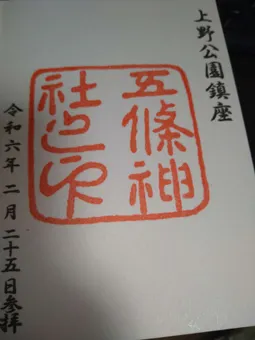 上野公園鎮座
五條神
社之印
令和六年二月二十五日参拝